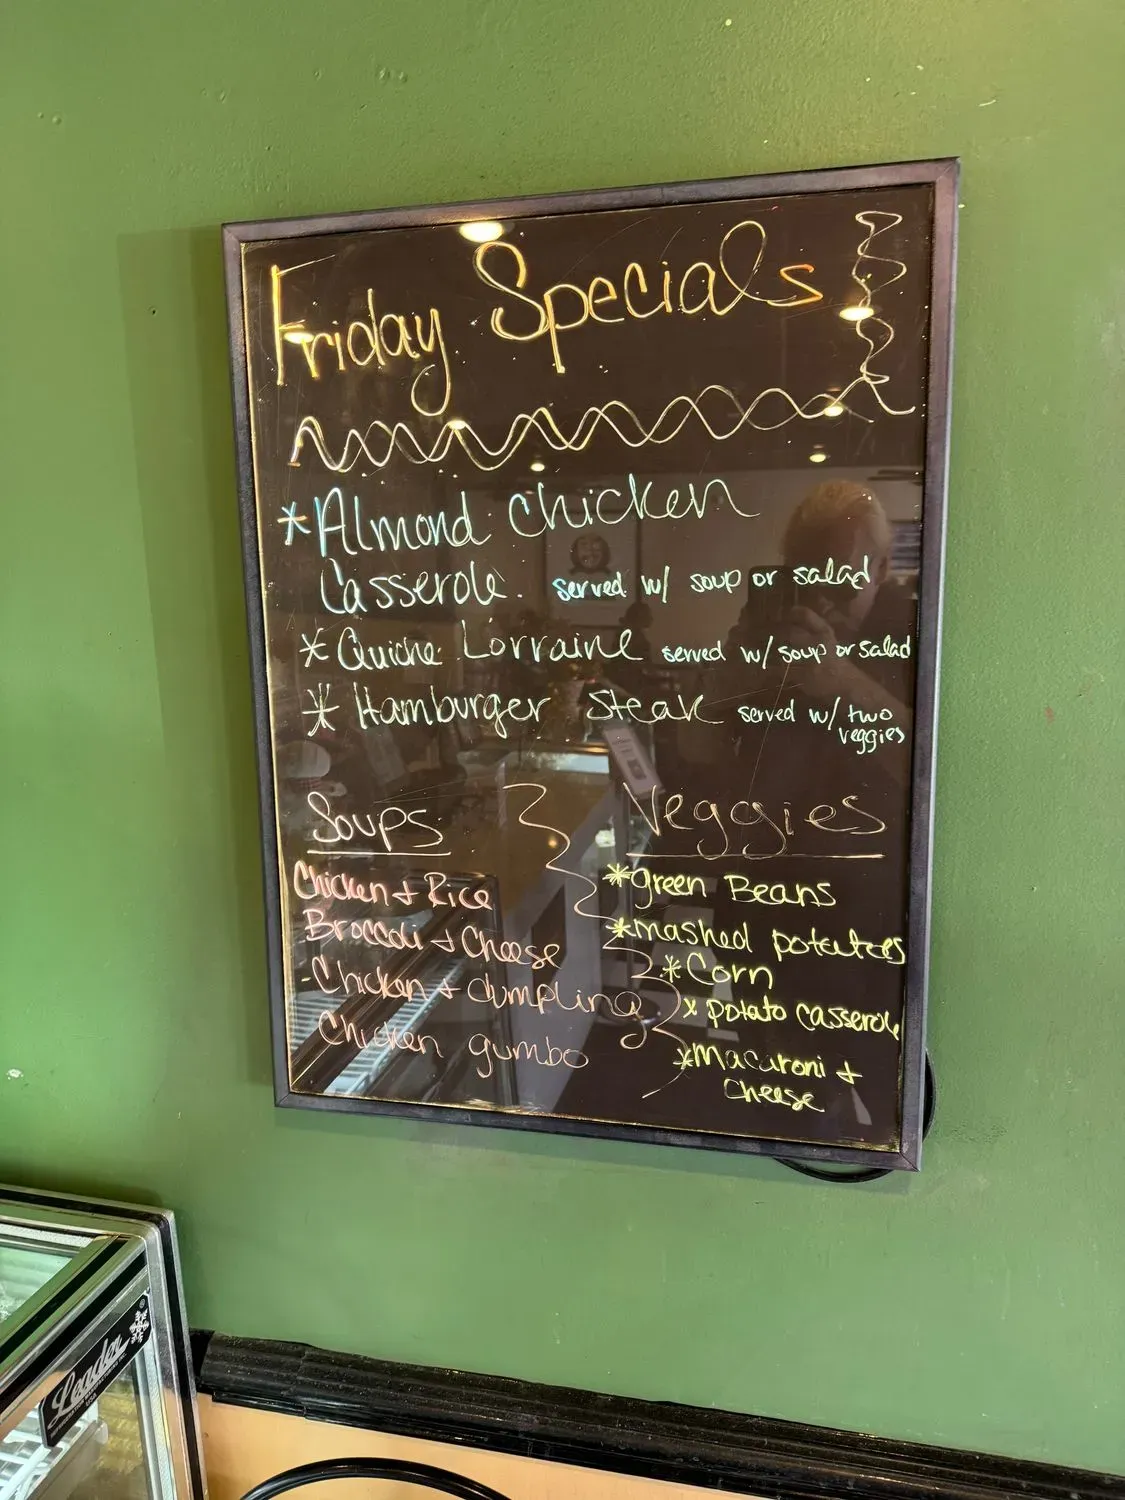 Friday Specials
*Almond Chicken
Casserole. served w/ soup or salad
*Quiche Lorraine served w/ soup or salad
*Hamburger Steak served w/ two
veggies
Soups
Chicken + Rice
Broccoli + Cheese
-Chicken + dumpling
Chicken gumbo
Veggies
*green Beans
*mashed potatoes
*Corn
*potato casserole
*Macaroni +
Cheese
Leader